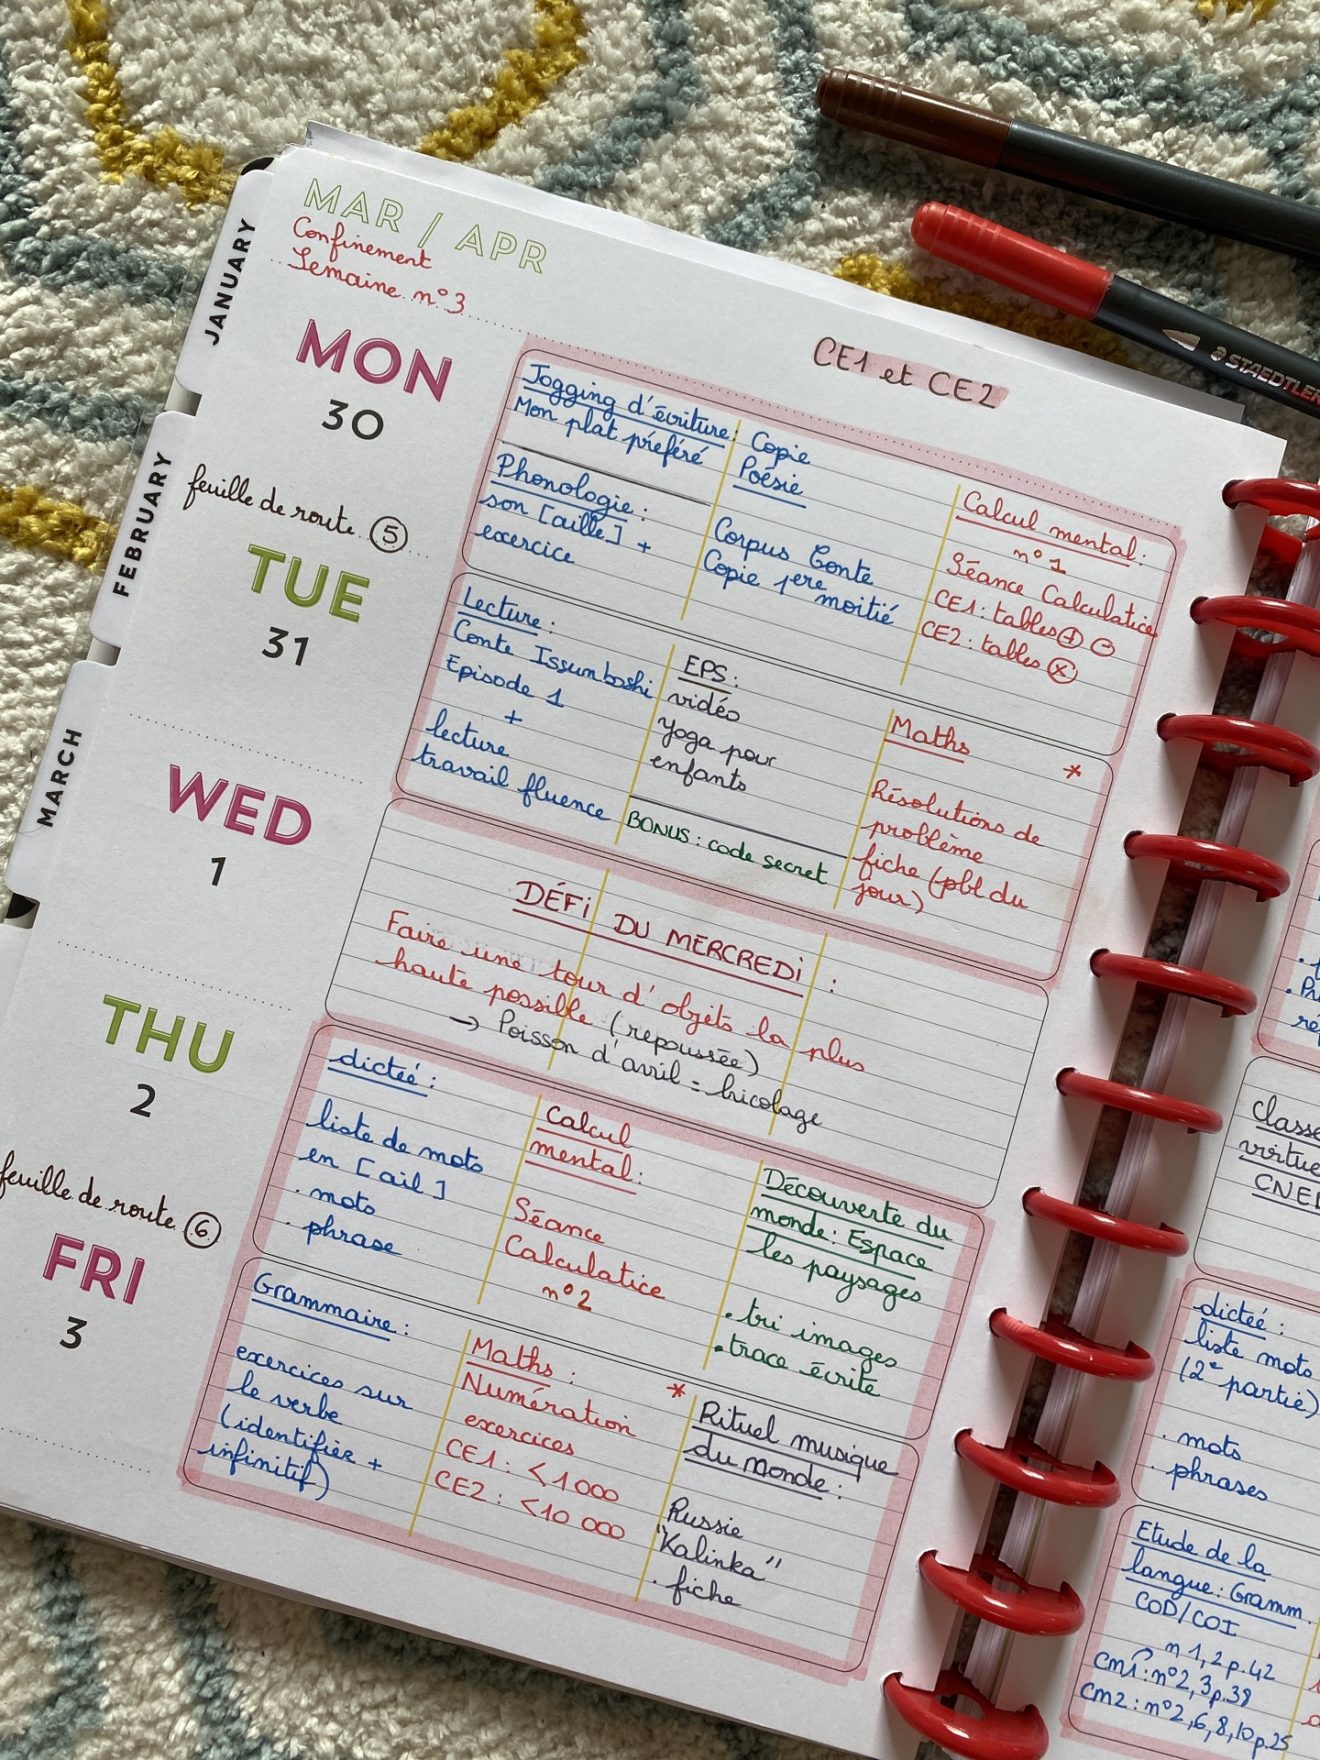 MAR / APR
Confinement
Semaine n°3
JANUARY
FEBRUARY
MARCH
STAEDTLER
CE1 et CE2
MON
30
feuille de route 5
Jogging d'écriture :
Mon plat préféré
Phonologie :
son [aille] +
exercice
Copie
Poésie
Corpus Conte
Copie 1ere
moitié
Calcul mental :
n°1
Séance Calculatice
CE1 : tables + -
CE2 : tables x
TUE
31
Lecture :
Conte Issunboshi
Episode 1
+
lecture
travail fluence
EPS :
vidéo
yoga pour
enfants
BONUS : code secret
Maths
*
Résolutions de
problème
fiche (pbl du
jour)
WED
1
DÉFi DU MERCREDi :
Faire une tour d'objets la plus
haute possible (repoussée)
→ Poisson d'avril = bricolage
THU
2
feuille de route 6
dicteé :
liste de mots
en [ail]
. mots
. phrase
Calcul
mental :
Séance
Calculatice
n°2
Découverte du
monde : Espace
les paysages
. tri images
. trace écrite
FRI
3
Grammaire :
exercices sur
le verbe
(identifier +
infinitif)
Maths :
Numération
exercices
CE1 : <1 000
CE2 : <10 000
*
Rituel musique
du monde :
Russie
"Kalinka"
. fiche
classe
virtue
CNED
dicteé :
liste mots
(2e partie)
. mots
. phrases
Etude de la
langue : Gramm.
COD/COI
n 1, 2 p.42
cm1 : n°2, 3 p.39
cm2 : n°2, 6, 8, 10 p.25